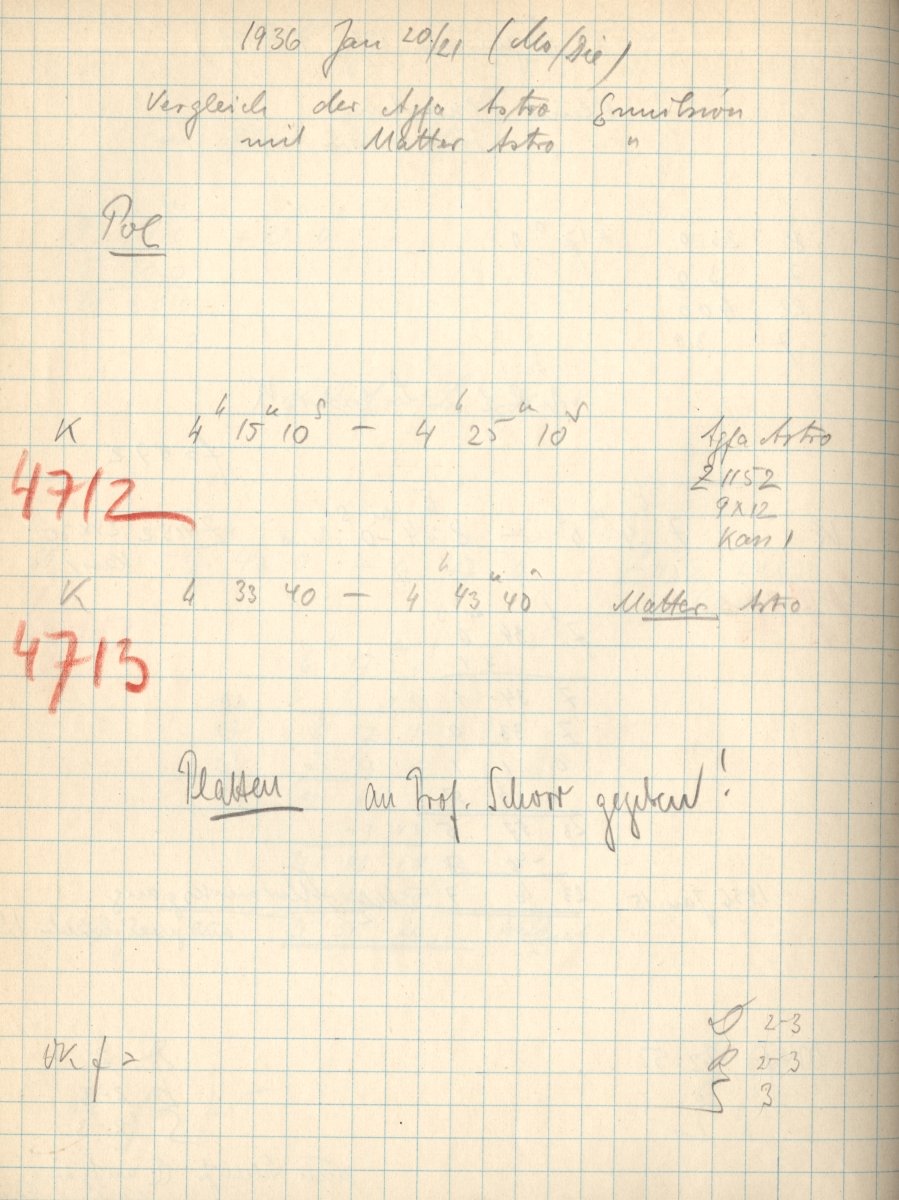 1936 Jan 20./21 (Mo/Die)
Vergleich der Agfa Astro Emulsion
mit Matter Astro "
Pol
K 4h 15m 10s — 4h 25m 10s Agfa Astro
4712 Z 1152
9x12
Kass 1
K 4 33 40 — 4h 43m 40s Matter Astro
4713
Platten an Prof. Schorr gegeben!
D 2-3
f = R 2-3
S 3